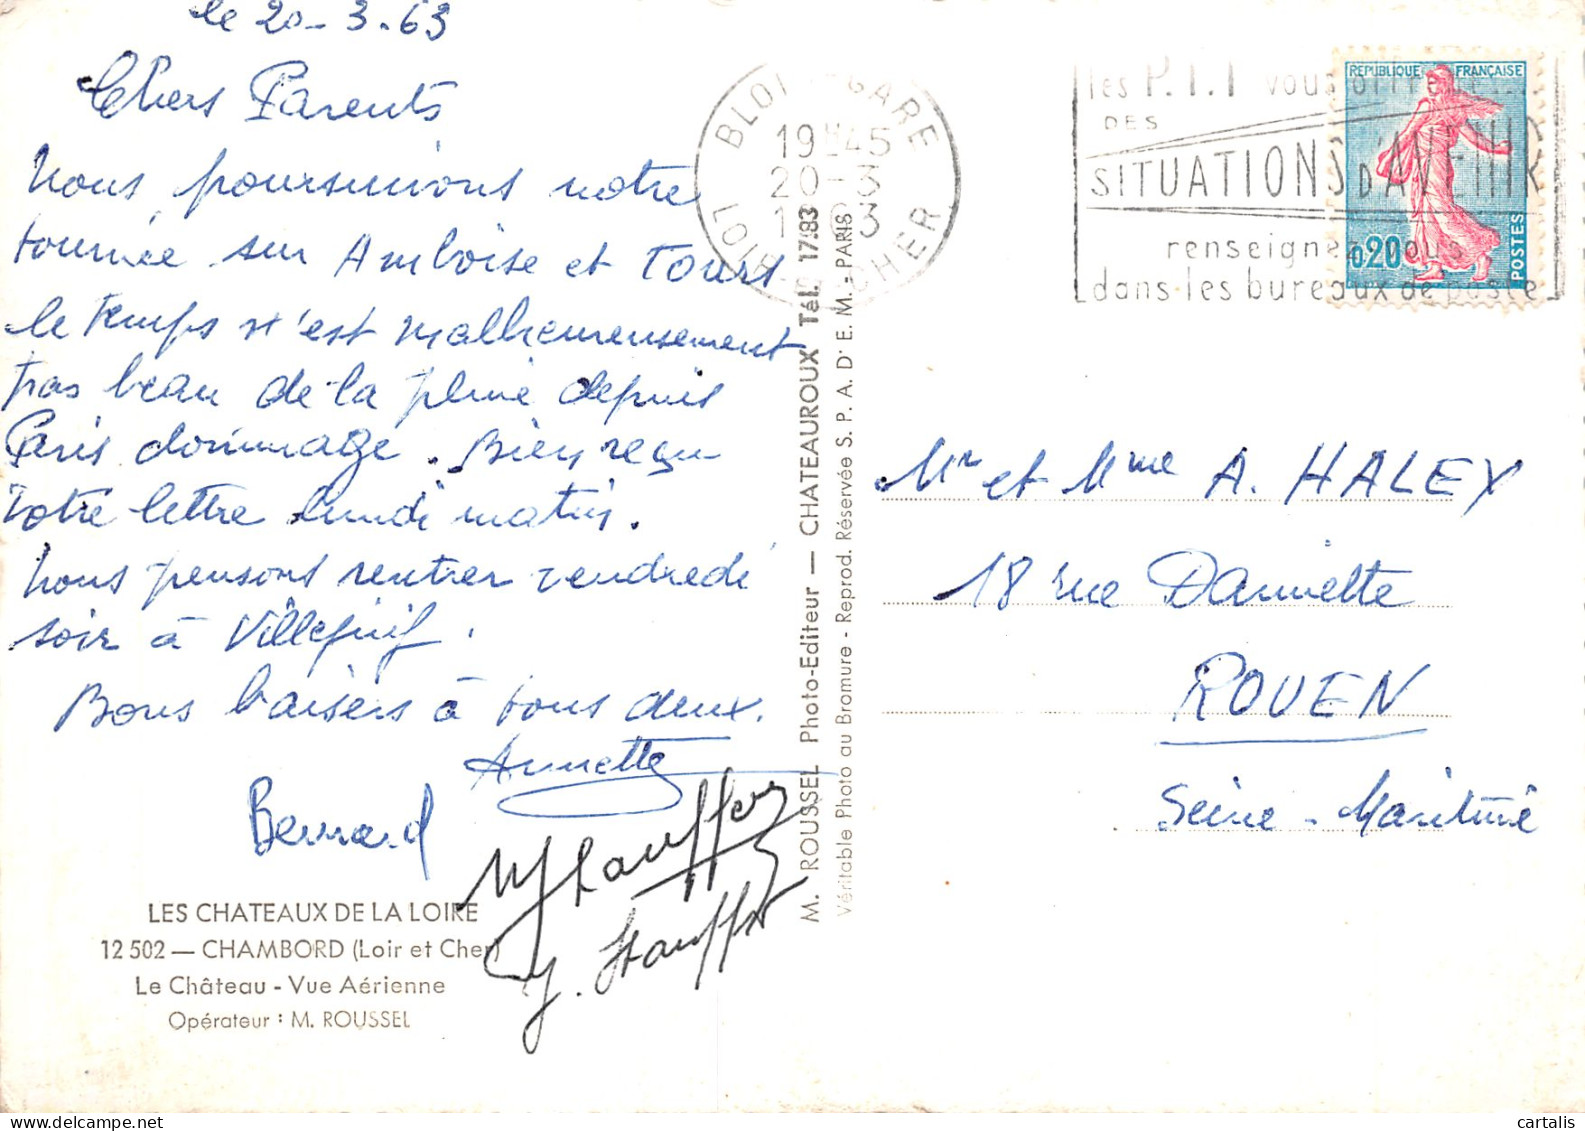 le 20-3-63
Chers Parents
Nous poursuivons notre
tournée sur Amboise et Tours
le temps n'est malheureusement
pas beau de la pluie depuis
Paris dommage. Bien reçu
votre lettre lundi matin.
Nous pensons rentrer vendredi
soir à Villejuif.
Bons baisers à tous deux.
Annette
Bernard
J. Stauffer
LES CHATEAUX DE LA LOIRE
12 502 — CHAMBORD (Loir et Cher)
Le Château - Vue Aérienne
Opérateur : M. ROUSSEL
M. ROUSSEL Photo-Editeur — CHATEAUROUX Tél. 17.83
Véritable Photo au Bromure - Reprod. Réservée S. P. A. D' E. M. - PARIS
BLOIS GARE
19H45
20-3
1963
LOIR-ET-CHER
les P.T.T vous offrent...
DES
SITUATIONS D'AVENIR
renseignez vous
dans les bureaux de poste
REPUBLIQUE FRANÇAISE
0,20
POSTES
Mr et Mme A. HALEX
18 rue Damiette
ROUEN
Seine-Maritime
cartalis